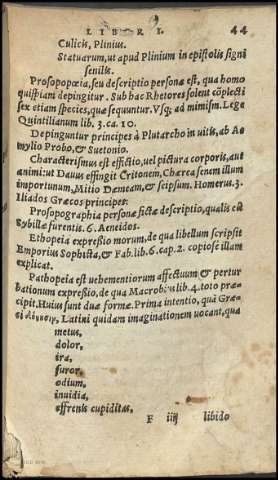 LIBRI. 44
Culicis, Plinius.
Statuarum, ut apud Plinium in epistolis signi
senilis.
Prosopopœia, seu descriptio personæ est, qua homo
quispiam depingitur. Sub hac Rhetores solent cõplecti
sex etiam species, quæ sequuntur. Vsq; ad mimism. Lege
Quintilianum lib. 3. ca. 10.
Depinguntur principes à Plutarcho in uitis, ab Ae
mylio Probo, & Suetonio.
Characterismus est effictio, uel pictura corporis, aut
animi: ut Dauus effingit Critonem, Chærea senem illum
importunum, Mitio Demeam, & seipsum. Homerus. 3.
Iliados Græcos principes.
Prosopographia personæ fictæ descriptio, qualis est
Sybillæ furentis. 6. Aeneidos.
Ethopeia expreßio morum, de qua libellum scripsit
Emporius Sophista, & Fab. lib. 6. cap. 2. copiosè illam
explicat.
Pathopeia est uehementiorum affectuum & pertur
bationum expreßio, de qua Macrobius lib. 4. toto præ
cipit. Huius sunt duæ formæ. Prima intentio, quã Græ=
ci Latini quidam imaginationem uocant, qua
metus,
dolor,
ira,
furor,
odium,
inuidia,
effrenis cupiditas,
F iiij libido